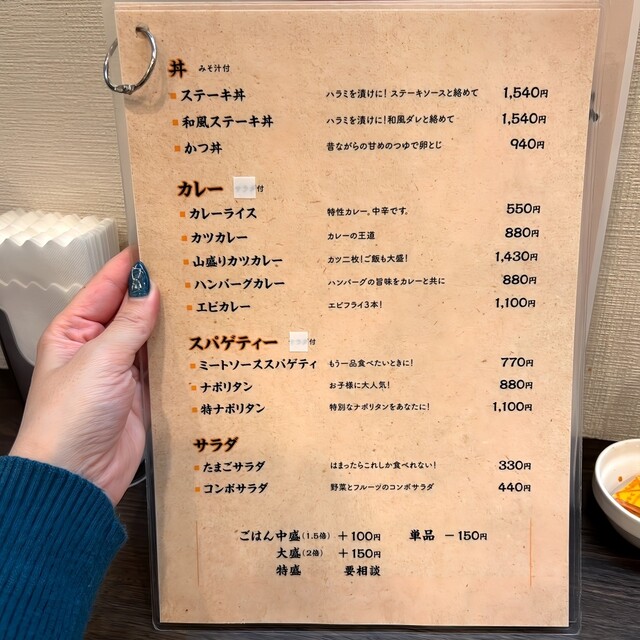 丼 みそ汁付
ステーキ丼 ハラミを漬けに! ステーキソースと絡めて 1,540円
和風ステーキ丼 ハラミを漬けに!和風ダレと絡めて 1,540円
かつ丼 昔ながらの甘めのつゆで卵とじ 940円
カレー 付
カレーライス 特性カレー。中辛です。 550円
カツカレー カレーの王道 880円
山盛りカツカレー カツ二枚!ご飯も大盛! 1,430円
ハンバーグカレー ハンバーグの旨味をカレーと共に 880円
エビカレー エビフライ3本! 1,100円
スパゲティー 付
ミートソーススパゲティ もう一品食べたいときに! 770円
ナポリタン お子様に大人気! 880円
特ナポリタン 特別なナポリタンをあなたに! 1,100円
サラダ
たまごサラダ はまったらこれしか食べれない! 330円
コンボサラダ 野菜とフルーツのコンボサラダ 440円
ごはん中盛(1.5倍) +100円 単品 -150円
大盛(2倍) +150円
特盛 要相談